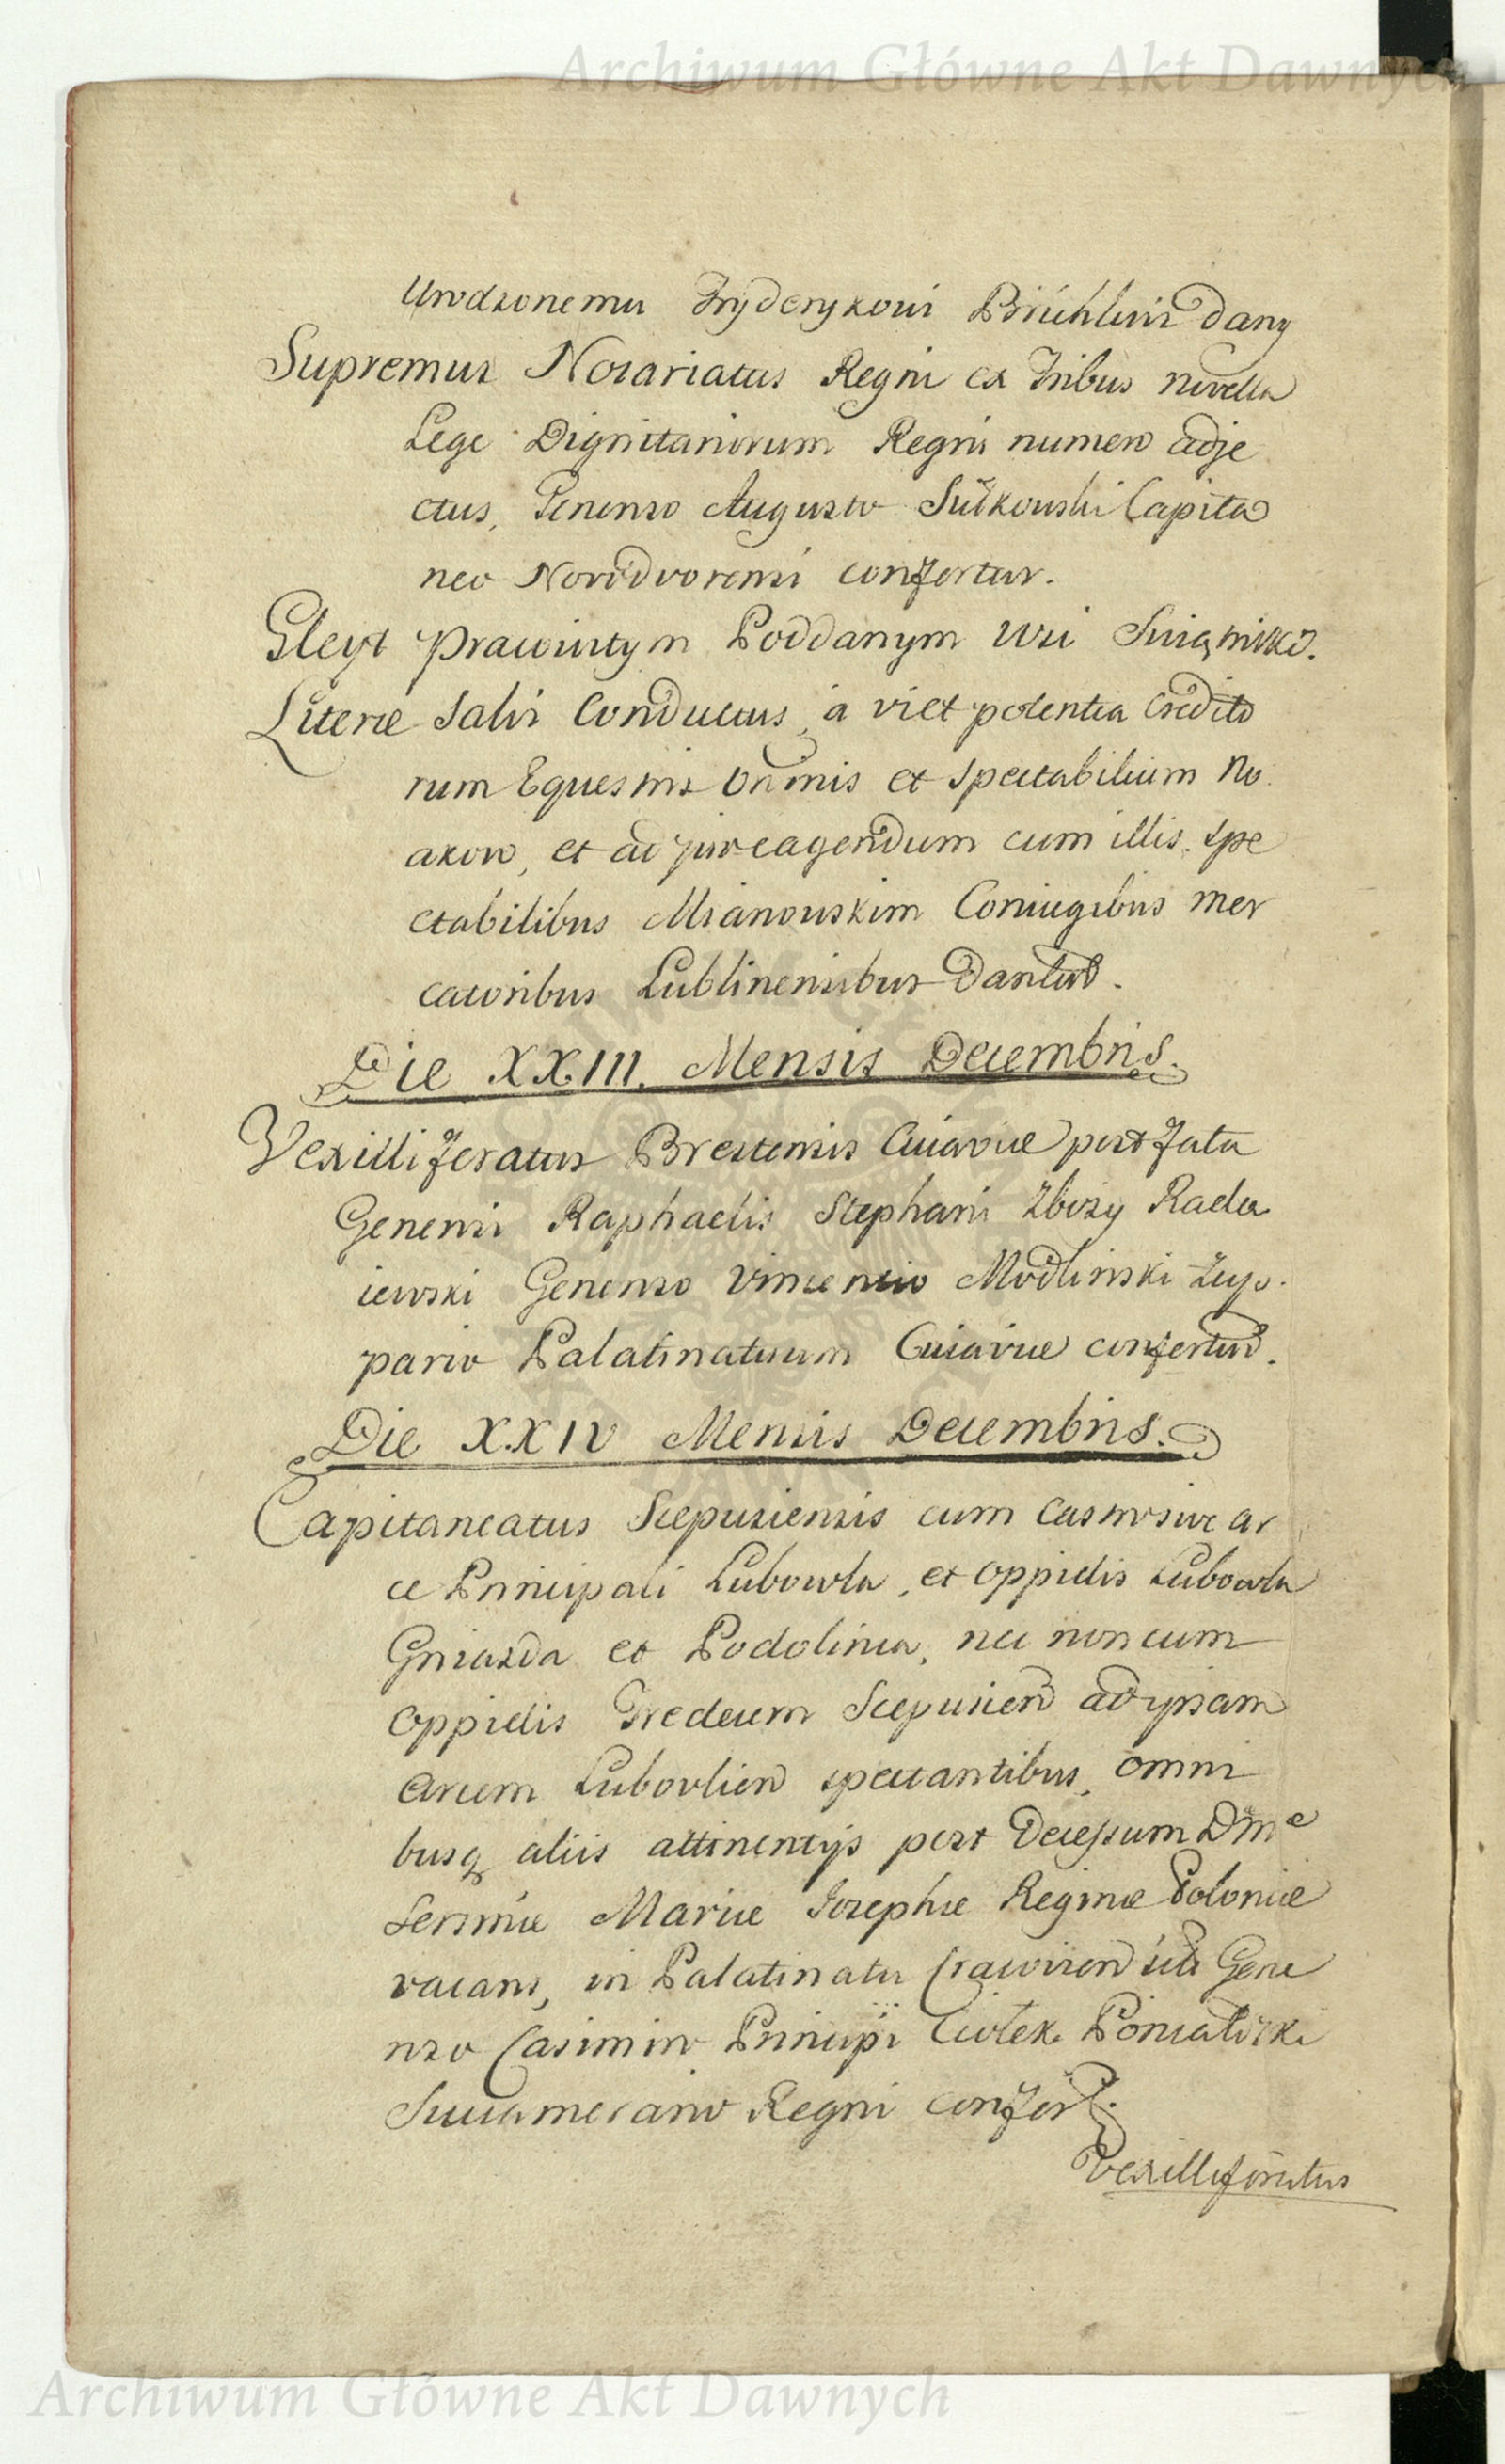 Archiwum Główne Akt Dawnych
Urodzonemu Fryderykowi Brühlowi dany
Supremus Notariatus Regni ex Tribus novella
Lege Dignitariorum Regni numero adje
ctus, Generoso Augusto Sułkowski Capita
neo Novodvorensi confertur.
Gleyt prawuiącym Poddanym wsi
Literæ Salvi Conductus, a vi et potentia Credito
rum Equestris Ordinis et Spectabilium No
axow, et ad jure agendum cum illis, Spe
ctabilibus Mianowskim Coniugibus Mer
catoribus Lublinensibus Dantur.
Die XXIII. Mensis Decembris.
Vexilliferatus Brestensis Cuiaviæ post fata
Generosi Raphaelis Stephani Zboży Rade
iewski Generoso Vincentio Modlinski
pario Palatinatuum Cuiaviæ confertur.
Die XXIV Mensis Decembris.
Capitaneatus Scepusiensis cum Castro sive ar
ce Principali Lubowla, et oppidis Lubowla
Gniazda et Podoliniec, nec non cum
Oppidis Tredecim Scepusien ad ipsam
Arcem Lubovlien spectantibus, omni
busq aliis attinentijs post Decessum Dmæ
Serenmæ Mariæ Josephæ Reginæ Poloniæ
vacans, in Palatinatu Cracovien situs Gene
roso Casimiro Principi Ciołek Poniatowski
Succamerario Regni confert.
Vexilliferatus
Archiwum Główne Akt Dawnych